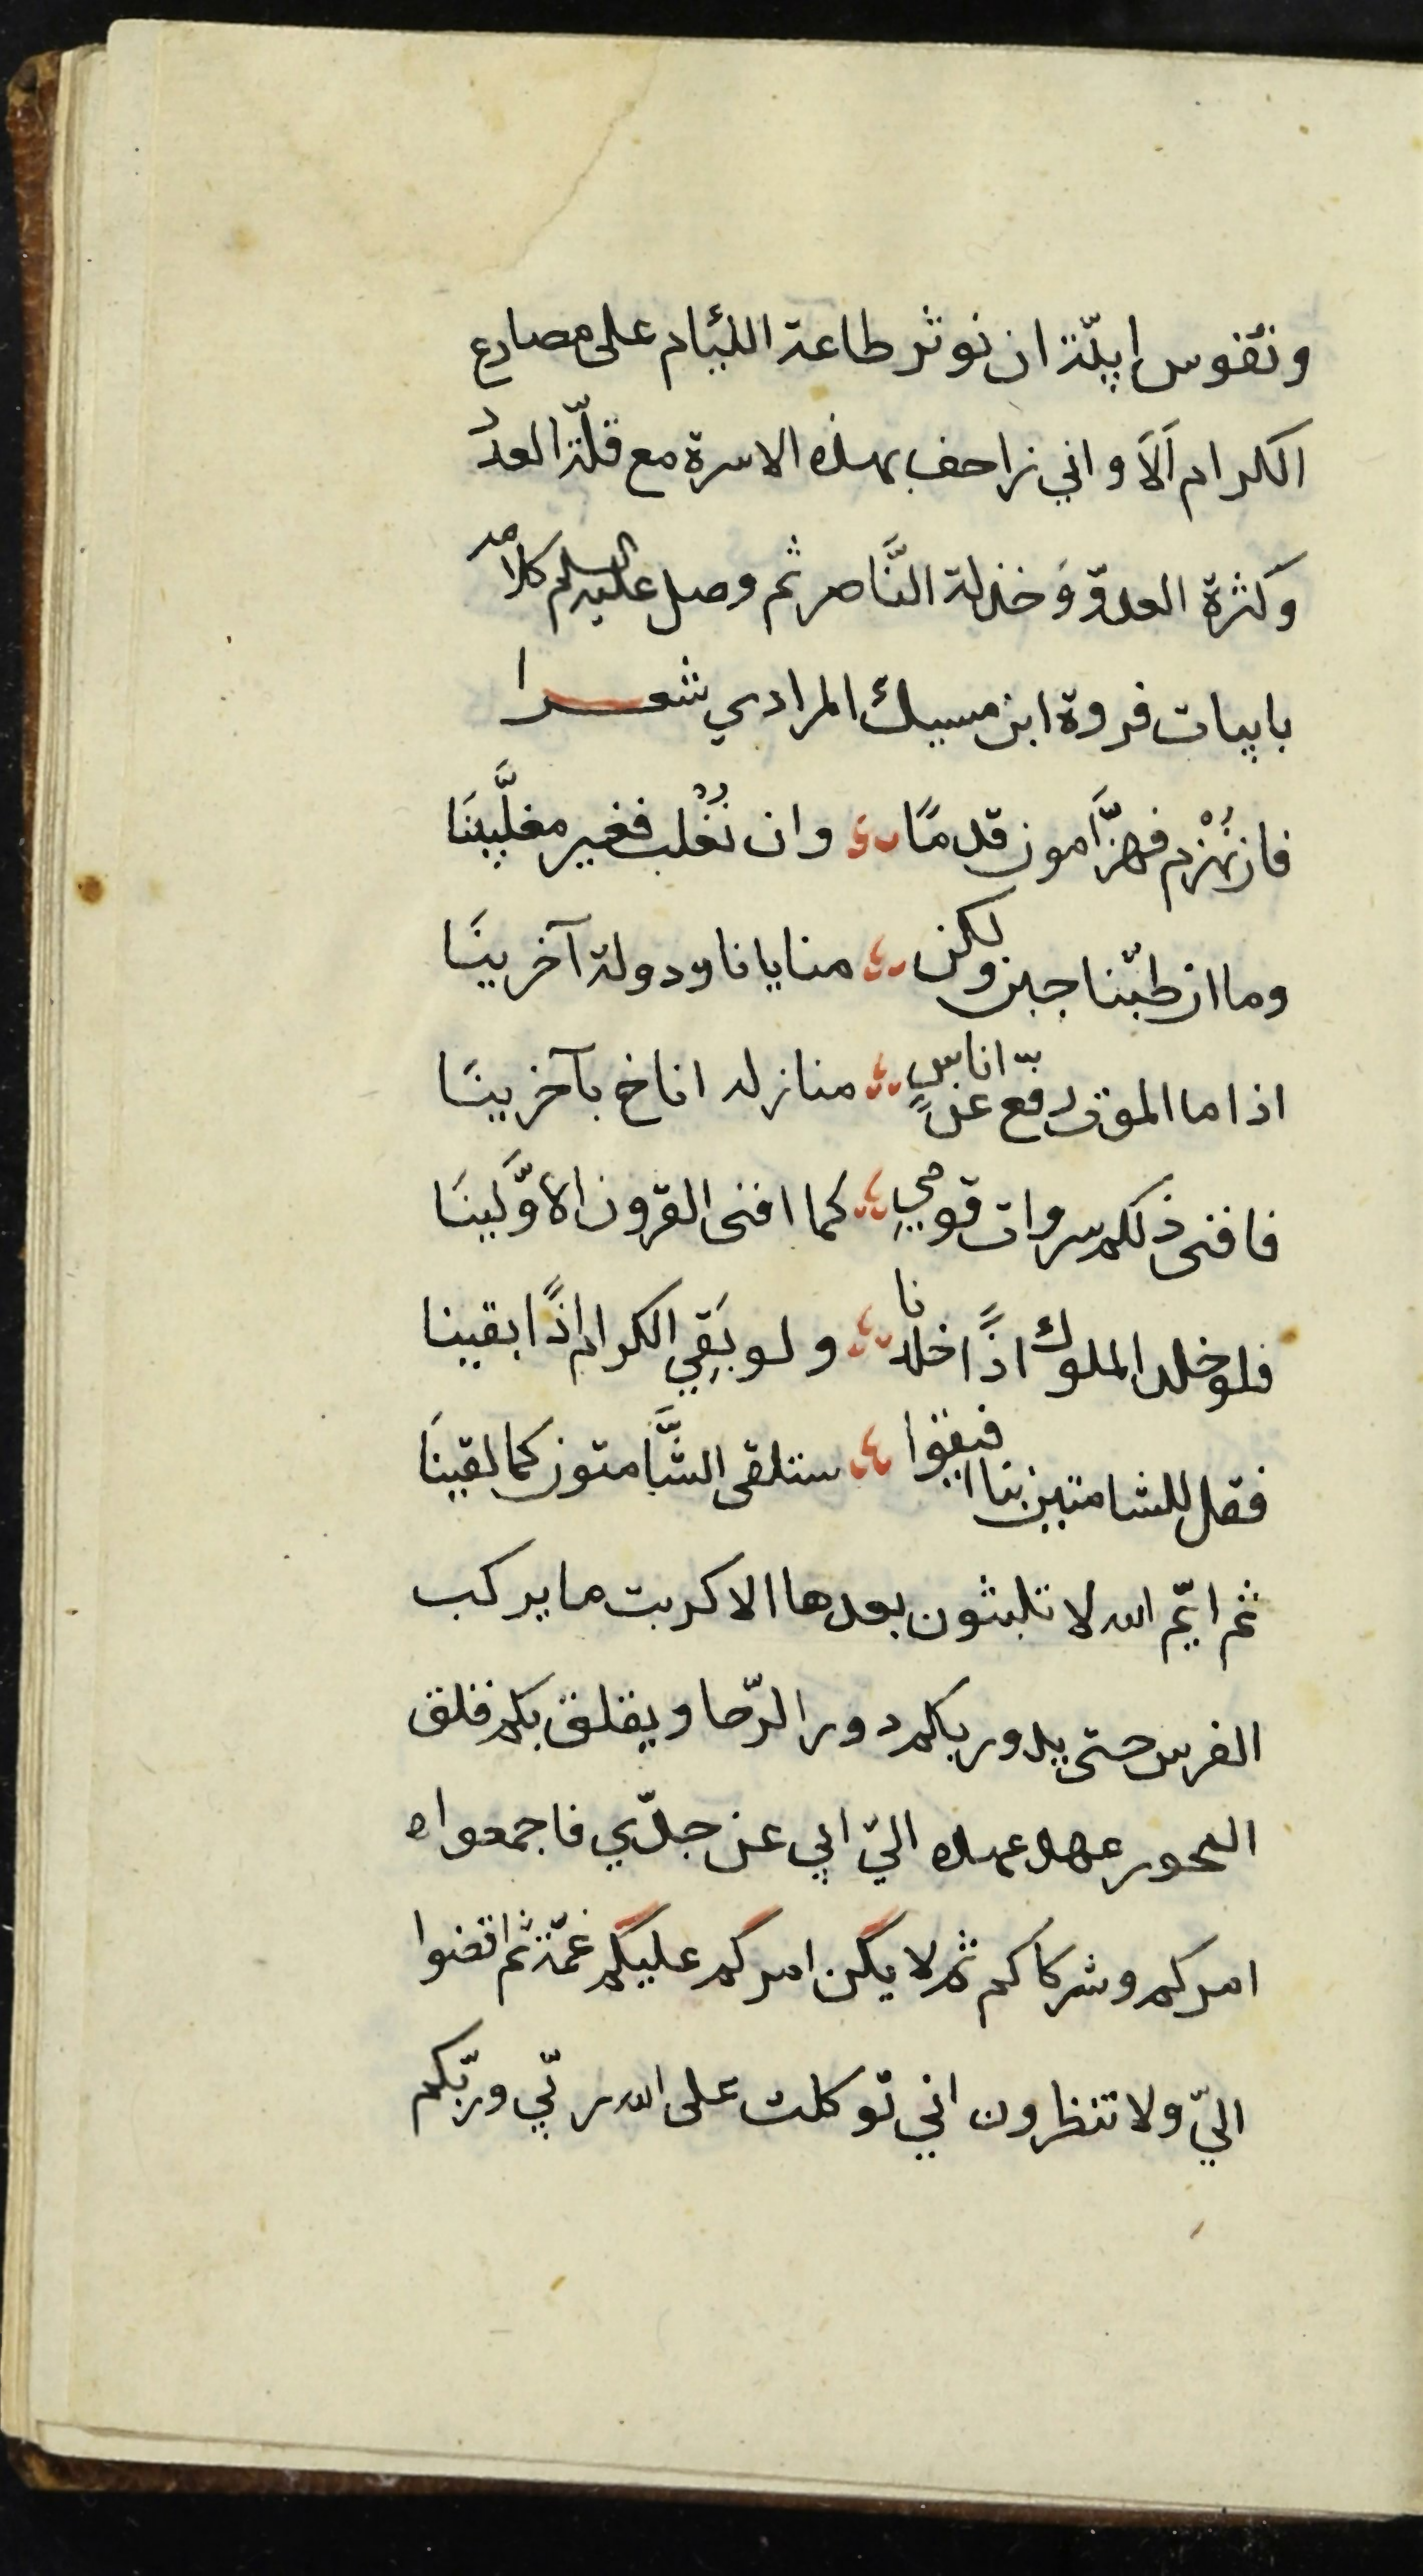 ونفوس ابيّة ان نوثر طاعة اللئام على مصارع
الكرام اَلَا واني زاحف بهذه الاسرة مع قلّة العدد
وكثرة العدوّ وَخذلة النَّاصر ثم وصل عليه السلم كلامه
بابيات فروة ابن مسيك المرادي شعــرا
فان نُهْزم فهزَّامون قدمًا وان نُغْلب فغير مغلَّبينَا
وما ان طبّنا جبن ولكن منايانا ودولة آخرينَا
اذا ما الموت رفّع عن اناسٍ منازله اناخ بآخرينَا
فافنى ذلكم سروات قومي كما افنى القرون الاوَّلينَا
فلو خلد الملوك اذًا خلدنا ولو بَقِي الكرام اذًا بقينا
فقل للشامتين بنا افيقوا ستلقى الشَّامتون كما لقينَا
ثم ايّم الله لا تلبثون بعدها الا كربت ما يركب
الفرس حتى يدور بكم دور الرّحا ويقلق بكم قلق
المحور عهد عهده اليّ ابي عن جدّي فاجمعواه
امركم وشركاكم ثم لا يكن امركم عليكم غمّة ثم اقضوا
اليّ ولا تنظرون اني توكلت على الله ربّي وربّكم